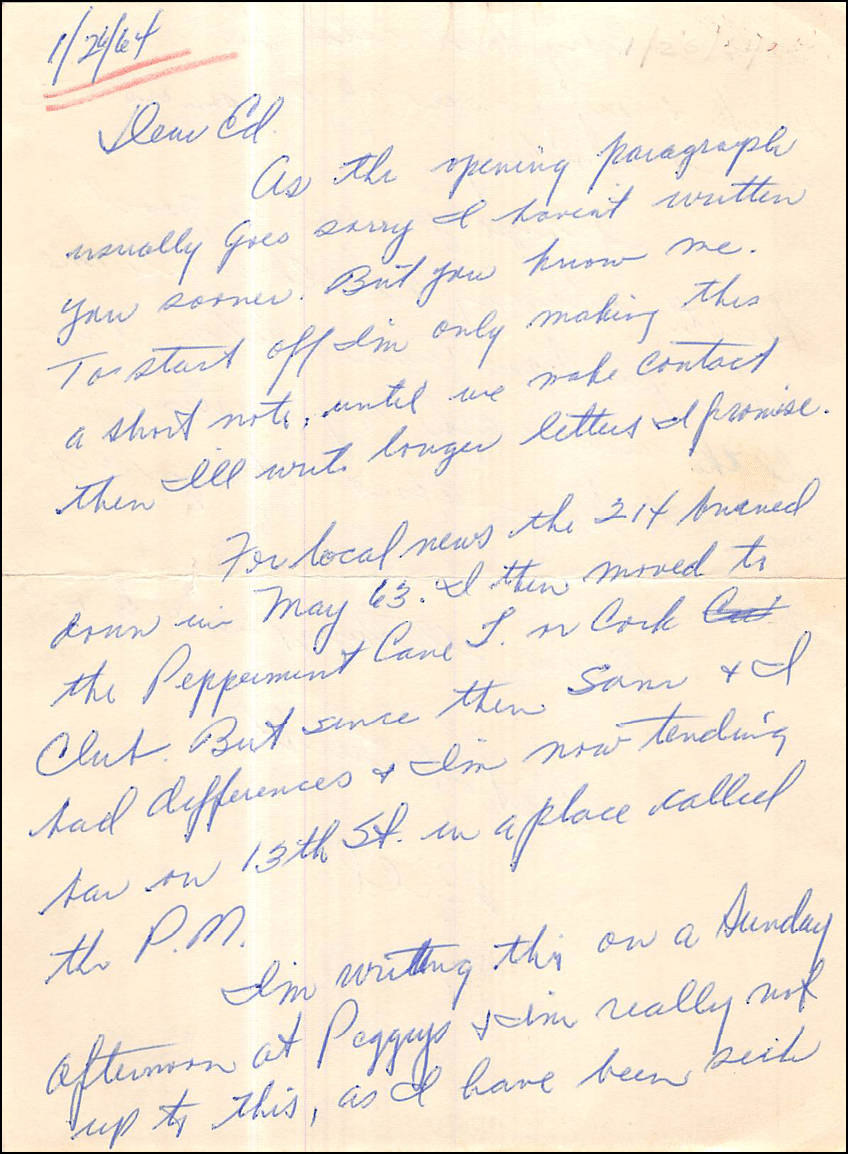 1/26/64
Dear Ed.
As the opening paragraph
usually goes sorry I haven't written
you sooner. But you know me.
To start off I'm only making this
a short note, until we make contact
then I'll write longer letters I promise.
For local news the 214 burned
down in May 63. I then moved to
the Peppermint Cane L. on Cork Cut
Club. But since then Sam & I
had differences & I'm now tending
bar on 13th St. in a place called
the P.M.
I'm writting this on a Sunday
afternoon at Peggys & I'm really not
up to this, as I have been sick